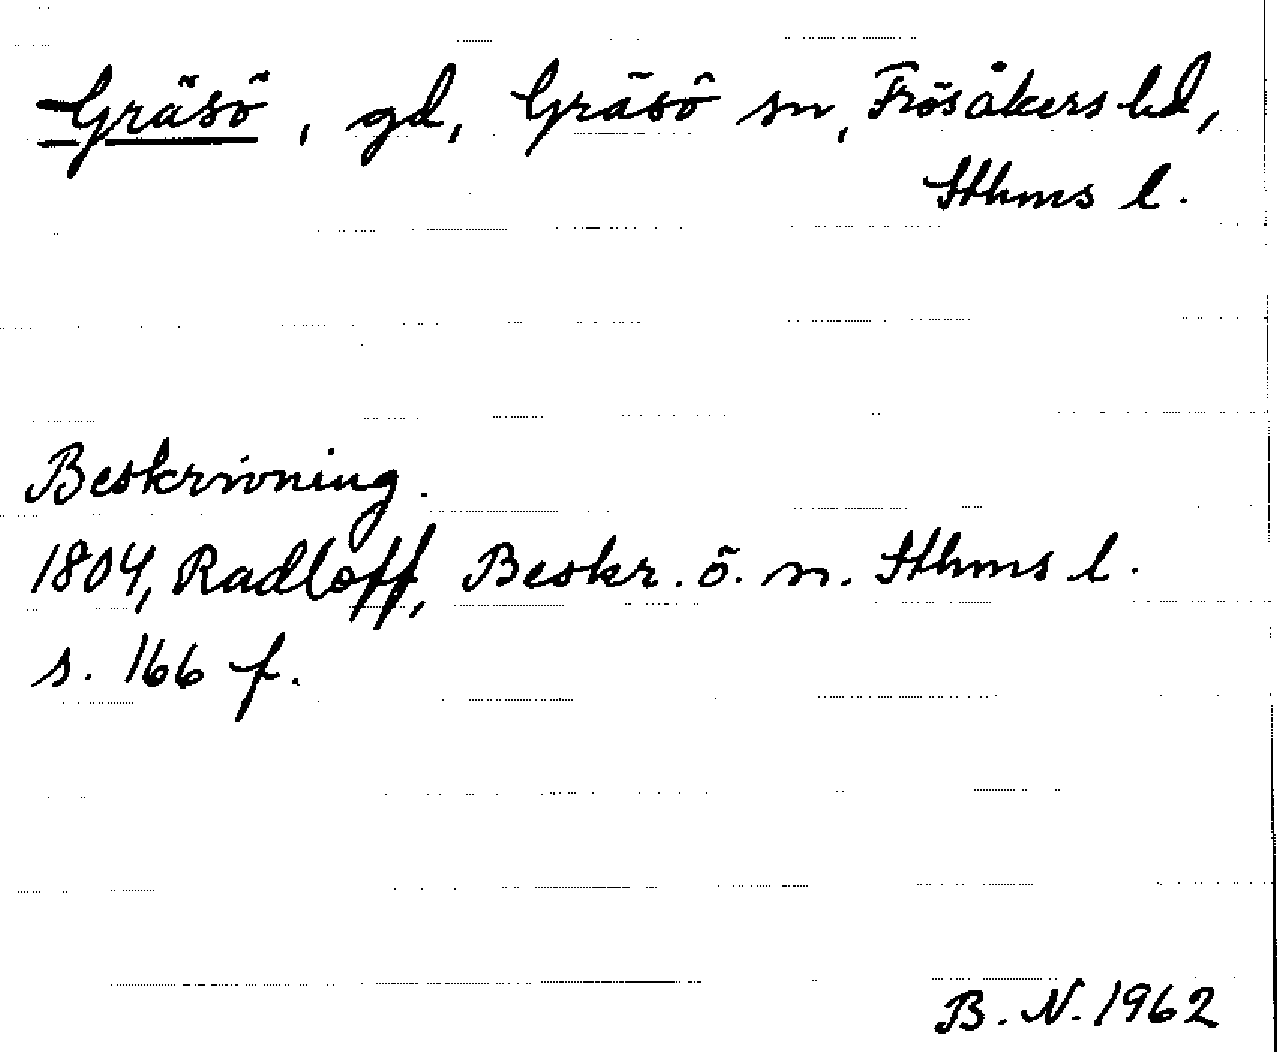 Gräsö, gd, Gräsö sn, Frösåkers hd,
Sthms l.
Beskrivning.
1804, Radloff, Beskr. ö. n. Sthms l.
s. 166 f.
B. N. 1962